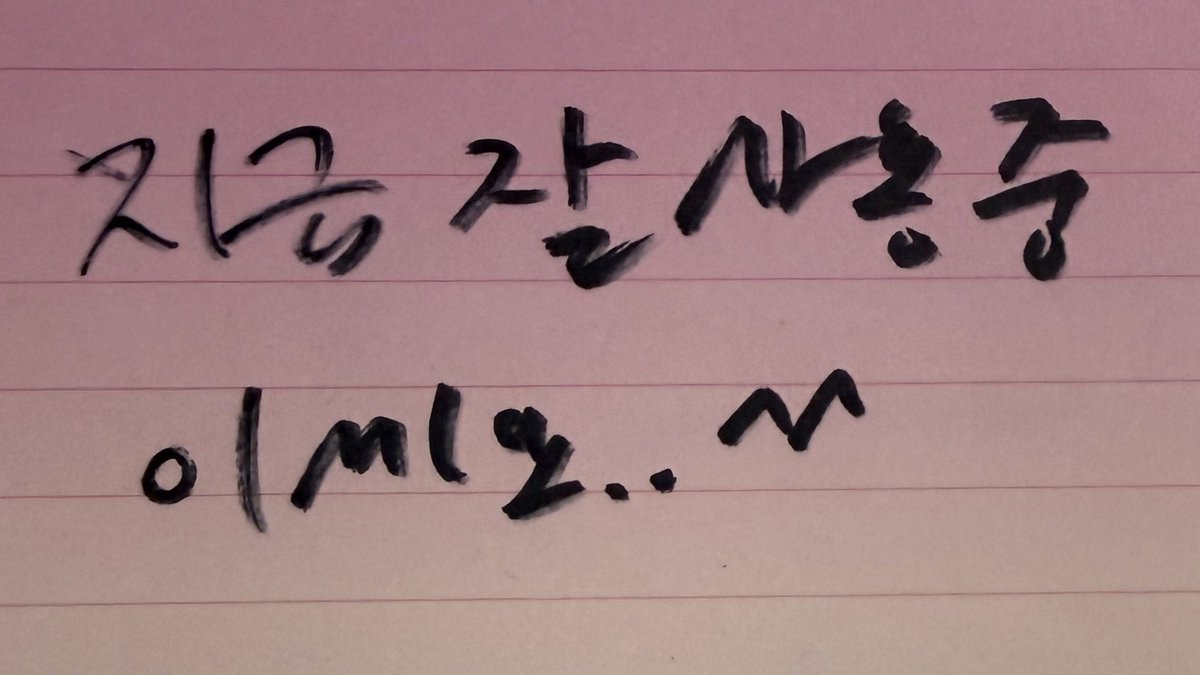 지금 잘 사용중
이씨요.. ~